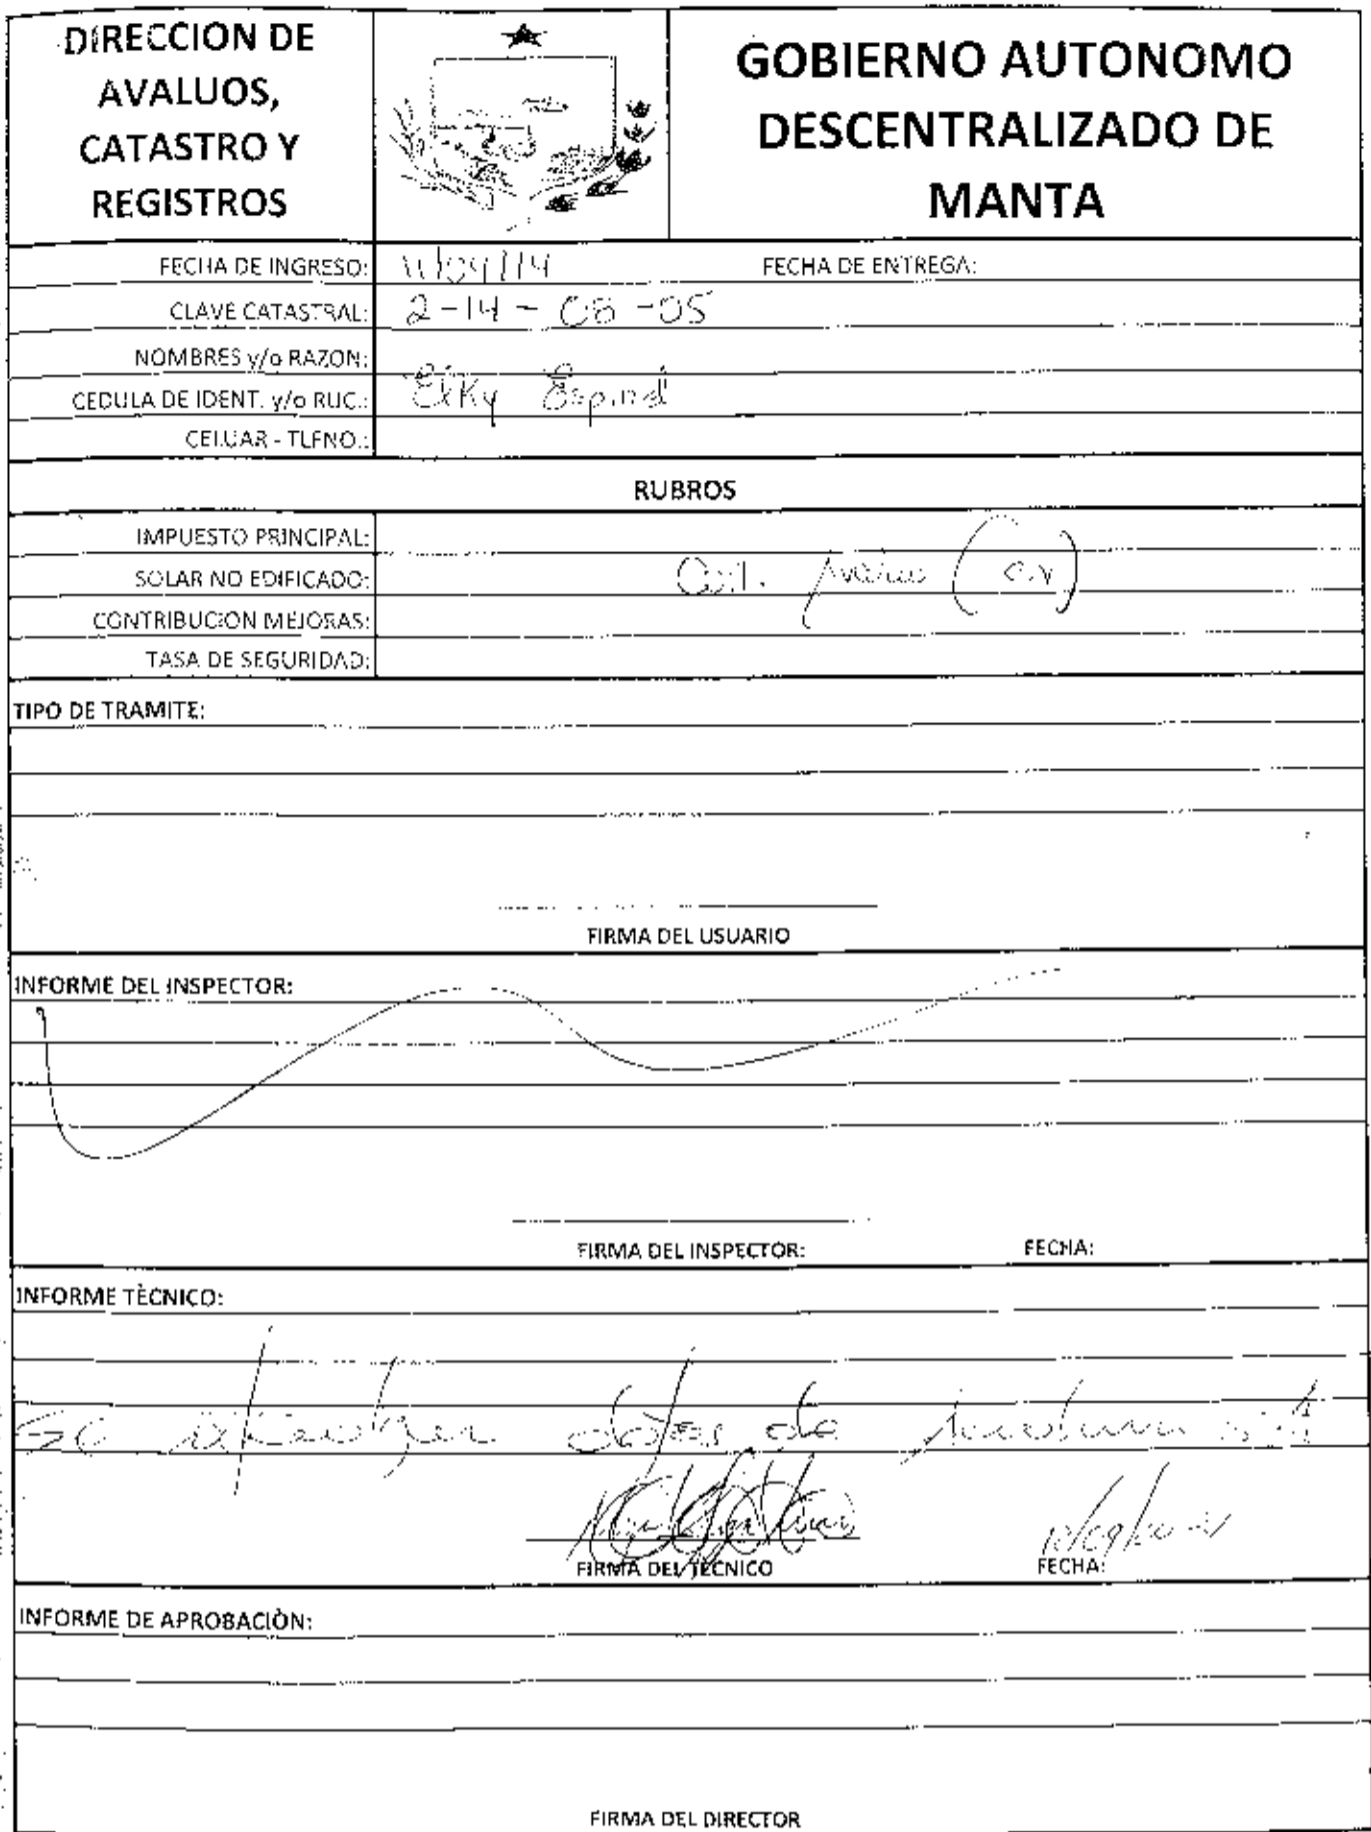 DIRECCION DE
AVALUOS,
CATASTRO Y
REGISTROS
GOBIERNO AUTONOMO
DESCENTRALIZADO DE
MANTA
FECHA DE INGRESO: 11/04/14 FECHA DE ENTREGA:
CLAVE CATASTRAL: 2-14-08-05
NOMBRES y/o RAZON:
Elky Espinal
CEDULA DE IDENT. y/o RUC.:
CELUAR - TLFNO.:
RUBROS
IMPUESTO PRINCIPAL:
SOLAR NO EDIFICADO:
CONTRIBUCION MEJORAS:
TASA DE SEGURIDAD:
TIPO DE TRAMITE:
FIRMA DEL USUARIO
INFORME DEL INSPECTOR:
FIRMA DEL INSPECTOR: FECHA:
INFORME TÈCNICO:
Se de
FIRMA DEL TECNICO FECHA:
INFORME DE APROBACIÒN:
FIRMA DEL DIRECTOR